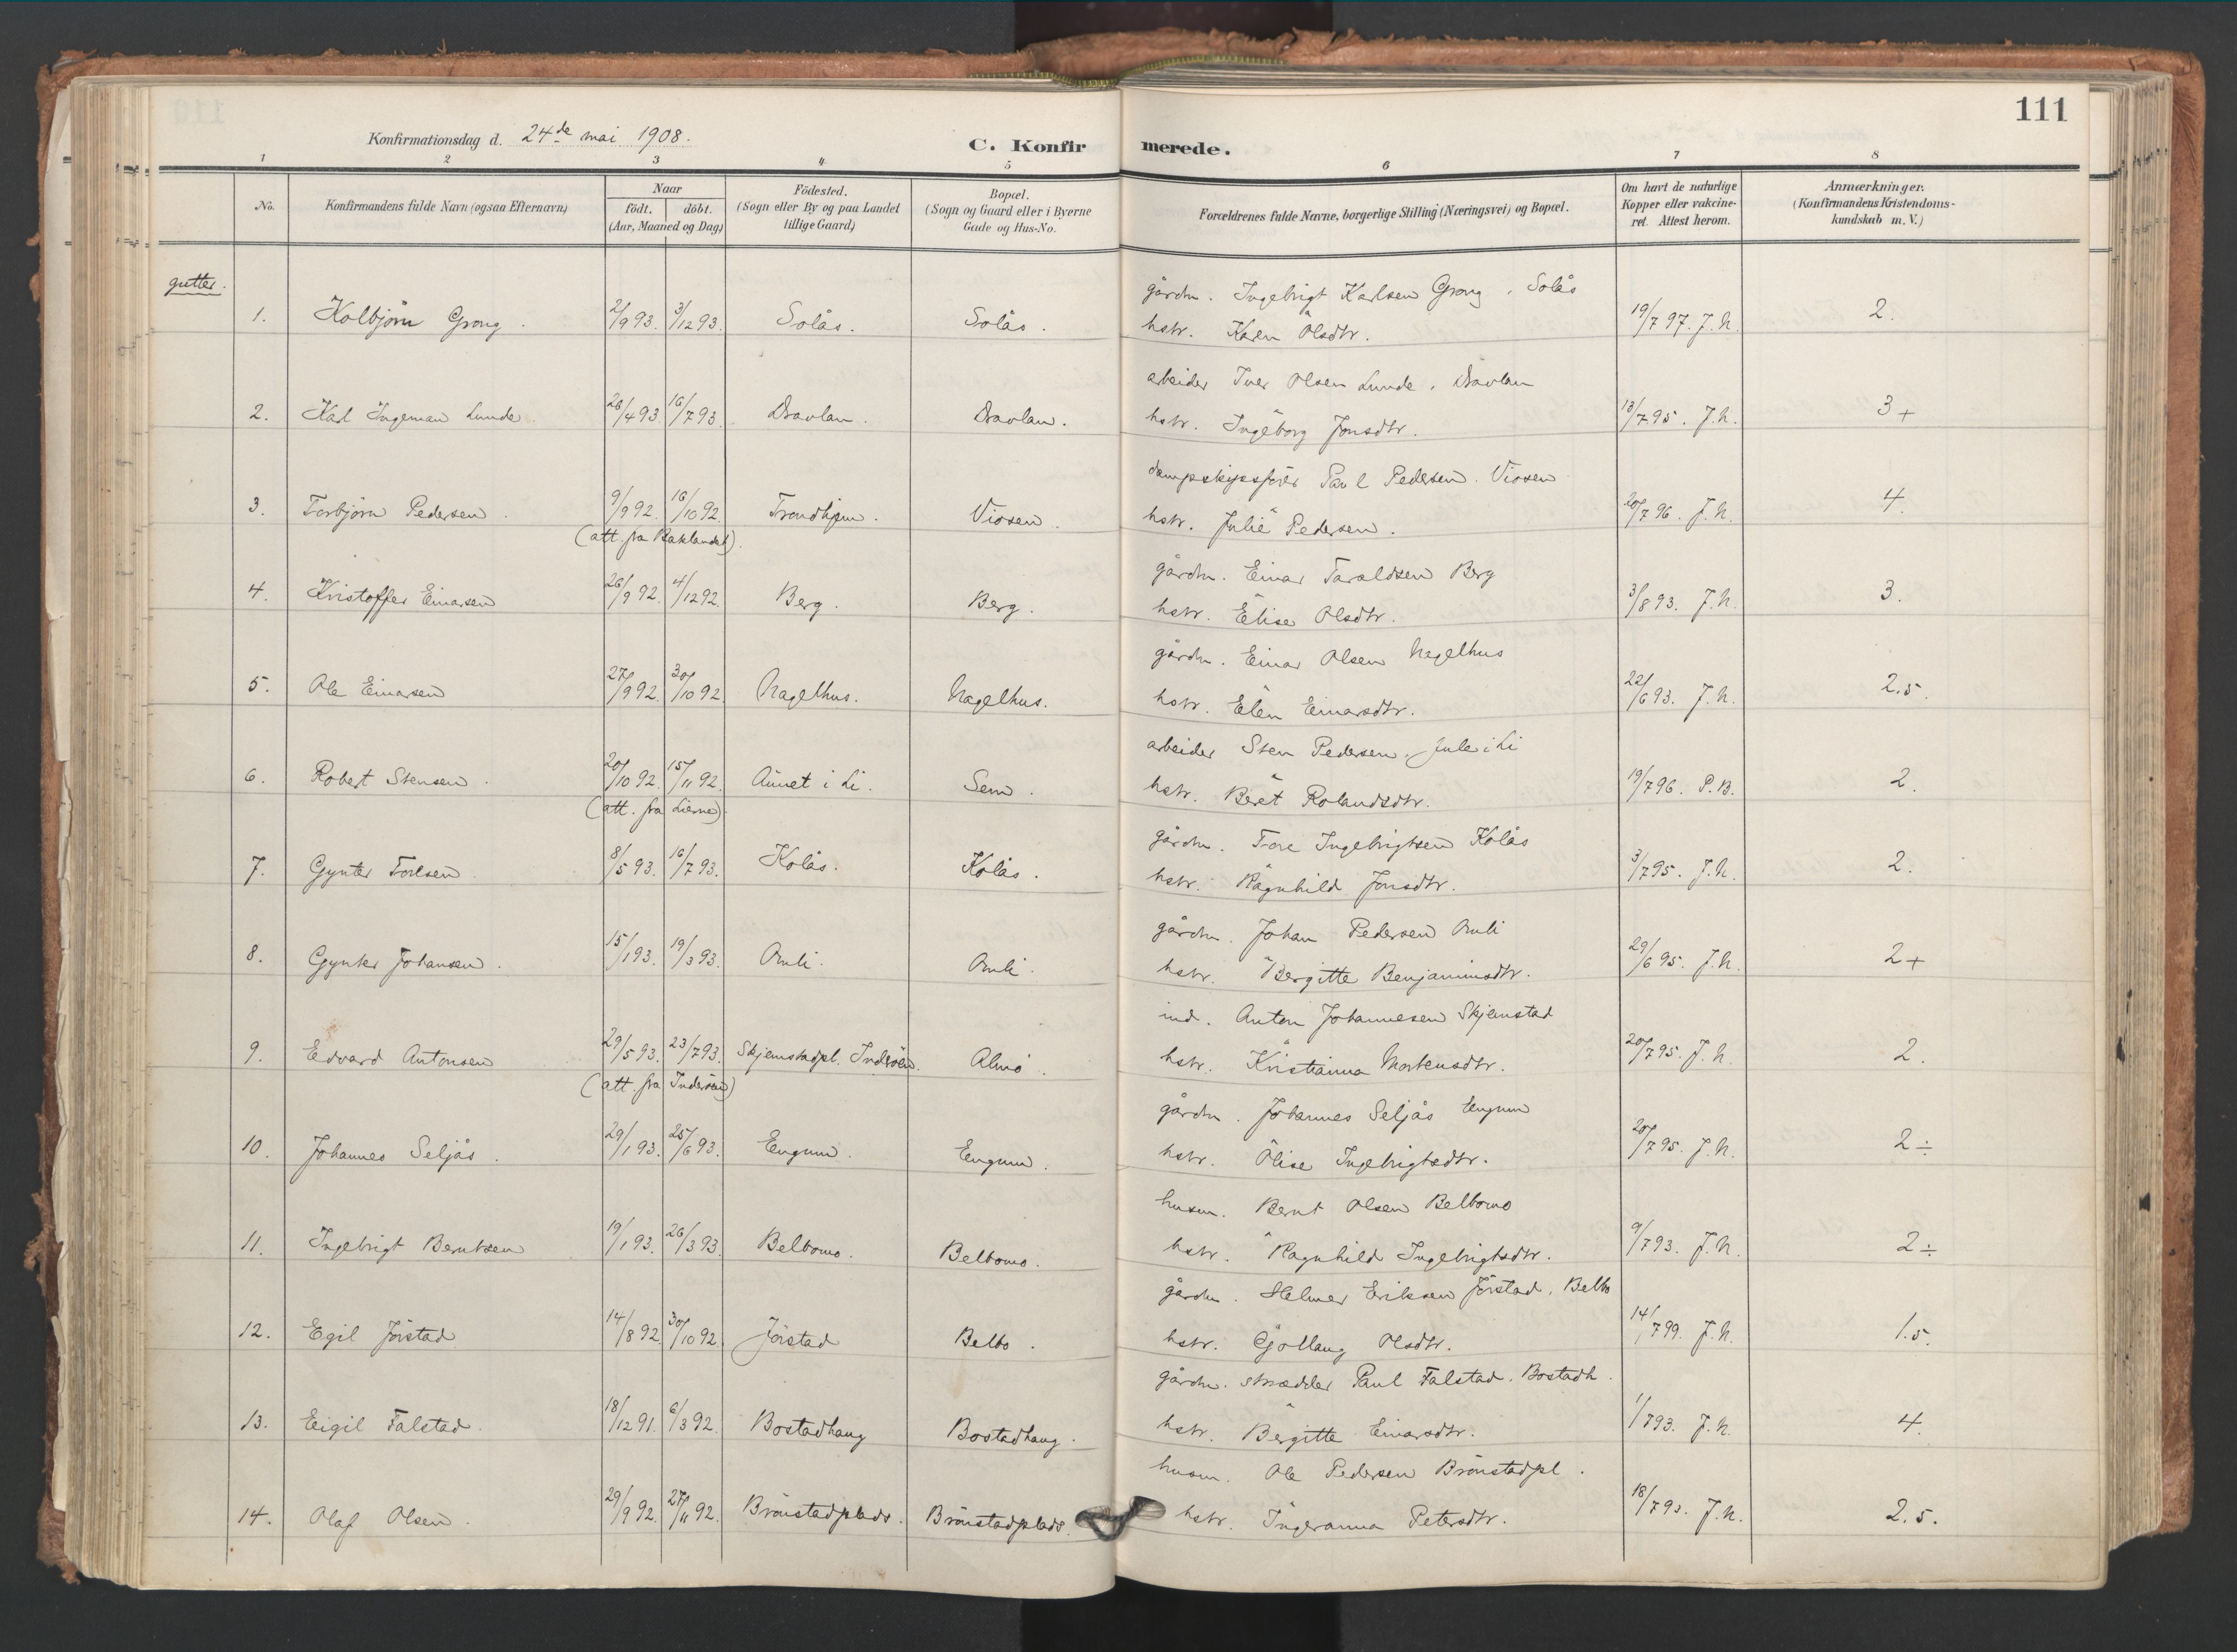 111
Konfirmationsdag d. 24de mai 1908.
C. Konfirmerede.
1 2 3 4 5 6 7 8
No. Konfirmandens fulde Navn (ogsaa Efternavn) Naar födt. döbt. (Aar, Maaned og Dag) Födested. (Sogn eller By og paa Landet tillige Gaard) Bopæl. (Sogn og Gaard eller i Byerne Gade og Hus-No. Forældrenes fulde Navne, borgerlige Stilling (Næringsvei) og Bopæl. Om havt de naturlige Kopper eller vakcineret. Attest herom. Anmærkninger. (Konfirmandens Kristendomskundskab m. V.)
gutter.
gårdm. Ingebrigt Karlsen Grong, Solås
1. Kolbjörn Grong. 2/9 93. 3/12 93. Solås. Solås. hstr. Karen Olsdtr. 19/7 97. J.N. 2.
arbeider Iver Olsen Lunde, Davlan
2. Karl Ingeman Lunde. 26/4 93. 16/7 93. Davlan. Davlan. hstr. Ingeborg Jonsdtr. 13/7 95. J.N. 3+
dampskipsförer Paul Pedersen. Viosen
3. Torbjörn Pedersen. 9/9 92. 16/10 92. Trondhjem. Viosen. hstr. Julie Pedersen. 20/7 96. J.N. 4.
(att. fra Baklandet).
gårdm. Einar Taraldsen Berg
4. Kristoffer Einarsen 26/9 92. 4/12 92. Berg. Berg. hstr. Elise Olsdtr. 3/8 93. J.N. 3.
gårdm. Einar Olsen Nagelhus
5. Ole Einarsen 27/9 92. 30/10 92 Nagelhus. Nagelhus. hstr. Elen Einarsdtr. 22/6 93. J.N. 2.5.
arbeider Sten Pedersen, Jule i Li
6. Robert Stensen. 20/10 92. 15/11 92. Aunet i Li. Sem. hstr. Beret Rolandsdtr. 19/7 96. P.B. 2.
(att. fra Lierne).
gårdm. Tore Ingebrigtsen Kolås
7. Gynter Toresen 8/5 93. 16/7 93. Kolås. Kolås. hstr. Ragnhild Jonsdtr. 3/7 95. J.N. 2.
gårdm. Johan Pedersen Omli
8. Gynter Johansen. 15/1 93. 19/3 93. Omli. Omli. hstr. Bergitte Benjaminsdtr. 29/6 95. J.N. 2+
ind. Anton Johannesen Skjemstad
9. Edvard Antonsen 29/5 93. 23/7 93. Skjemstadpl. Inderöen. Almo. hstr. Kristianna Mortensdtr. 20/7 95. J.N. 2.
(att. fra Inderöen)
gårdm. Johannes Seljås Engum
10. Johannes Seljås. 29/1 93. 25/6 93. Engum. Engum. hstr. Olise Ingebrigtsdtr. 20/7 95. J.N. 2÷
husm. Bernt Olsen Belbomo
11. Ingebrigt Berntsen 19/1 93. 26/3 93. Belbomo. Belbomo. hstr. Ragnhild Ingebrigtsdtr. 9/7 93. J.N. 2÷
gårdm. Helmer Eriksen Jörstad, Belbo
12. Egil Jörstad 14/8 92. 30/10 92. Jörstad Belbo. hstr. Gjöllaug Olsdtr. 14/7 99. J.N. 1.5.
gårdm. skrædder Paul Falstad, Bostadh.
13. Eigil Falstad. 18/12 91. 6/3 92. Bostadhaug Bostadhaug. hstr. Bergitte Einarsdtr. 1/7 93. J.N. 4.
husm. Ole Pedersen Brönstadpl.
14. Olaf Olsen. 29/9 92. 27/11 92. Brönstadplads. Brönstadplads. hstr. Ingeranna Petersdtr. 18/7 93. J.N. 2.5.